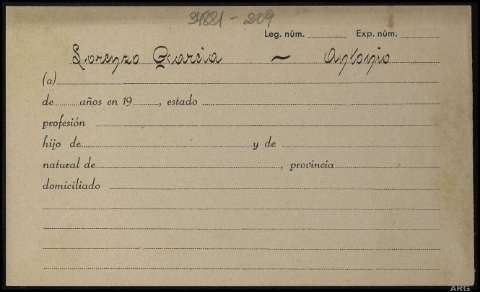 34881-209
Leg. núm. Exp. núm.
Lorenzo Garcia ~ Antonio
(a)
de años en 19 , estado
profesión
hijo de y de
natural de , provincia
domiciliado
ARG